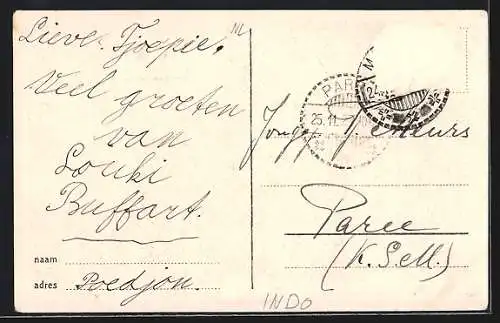 Lieve Tjoepie,
Veel groeten
van
Louki
Buffart.
naam
adres Poedjon.
PAR
25.11
24
Jongj
Paree
(K.Sell).
INDO